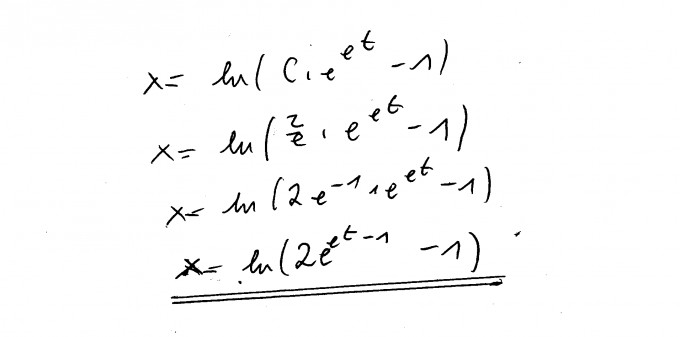 x = ln(C · e^{e^t} - 1)
x = ln(\frac{2}{e} · e^{e^t} - 1)
x = ln(2e^{-1} · e^{e^t} - 1)
x = ln(2e^{e^t - 1} - 1)